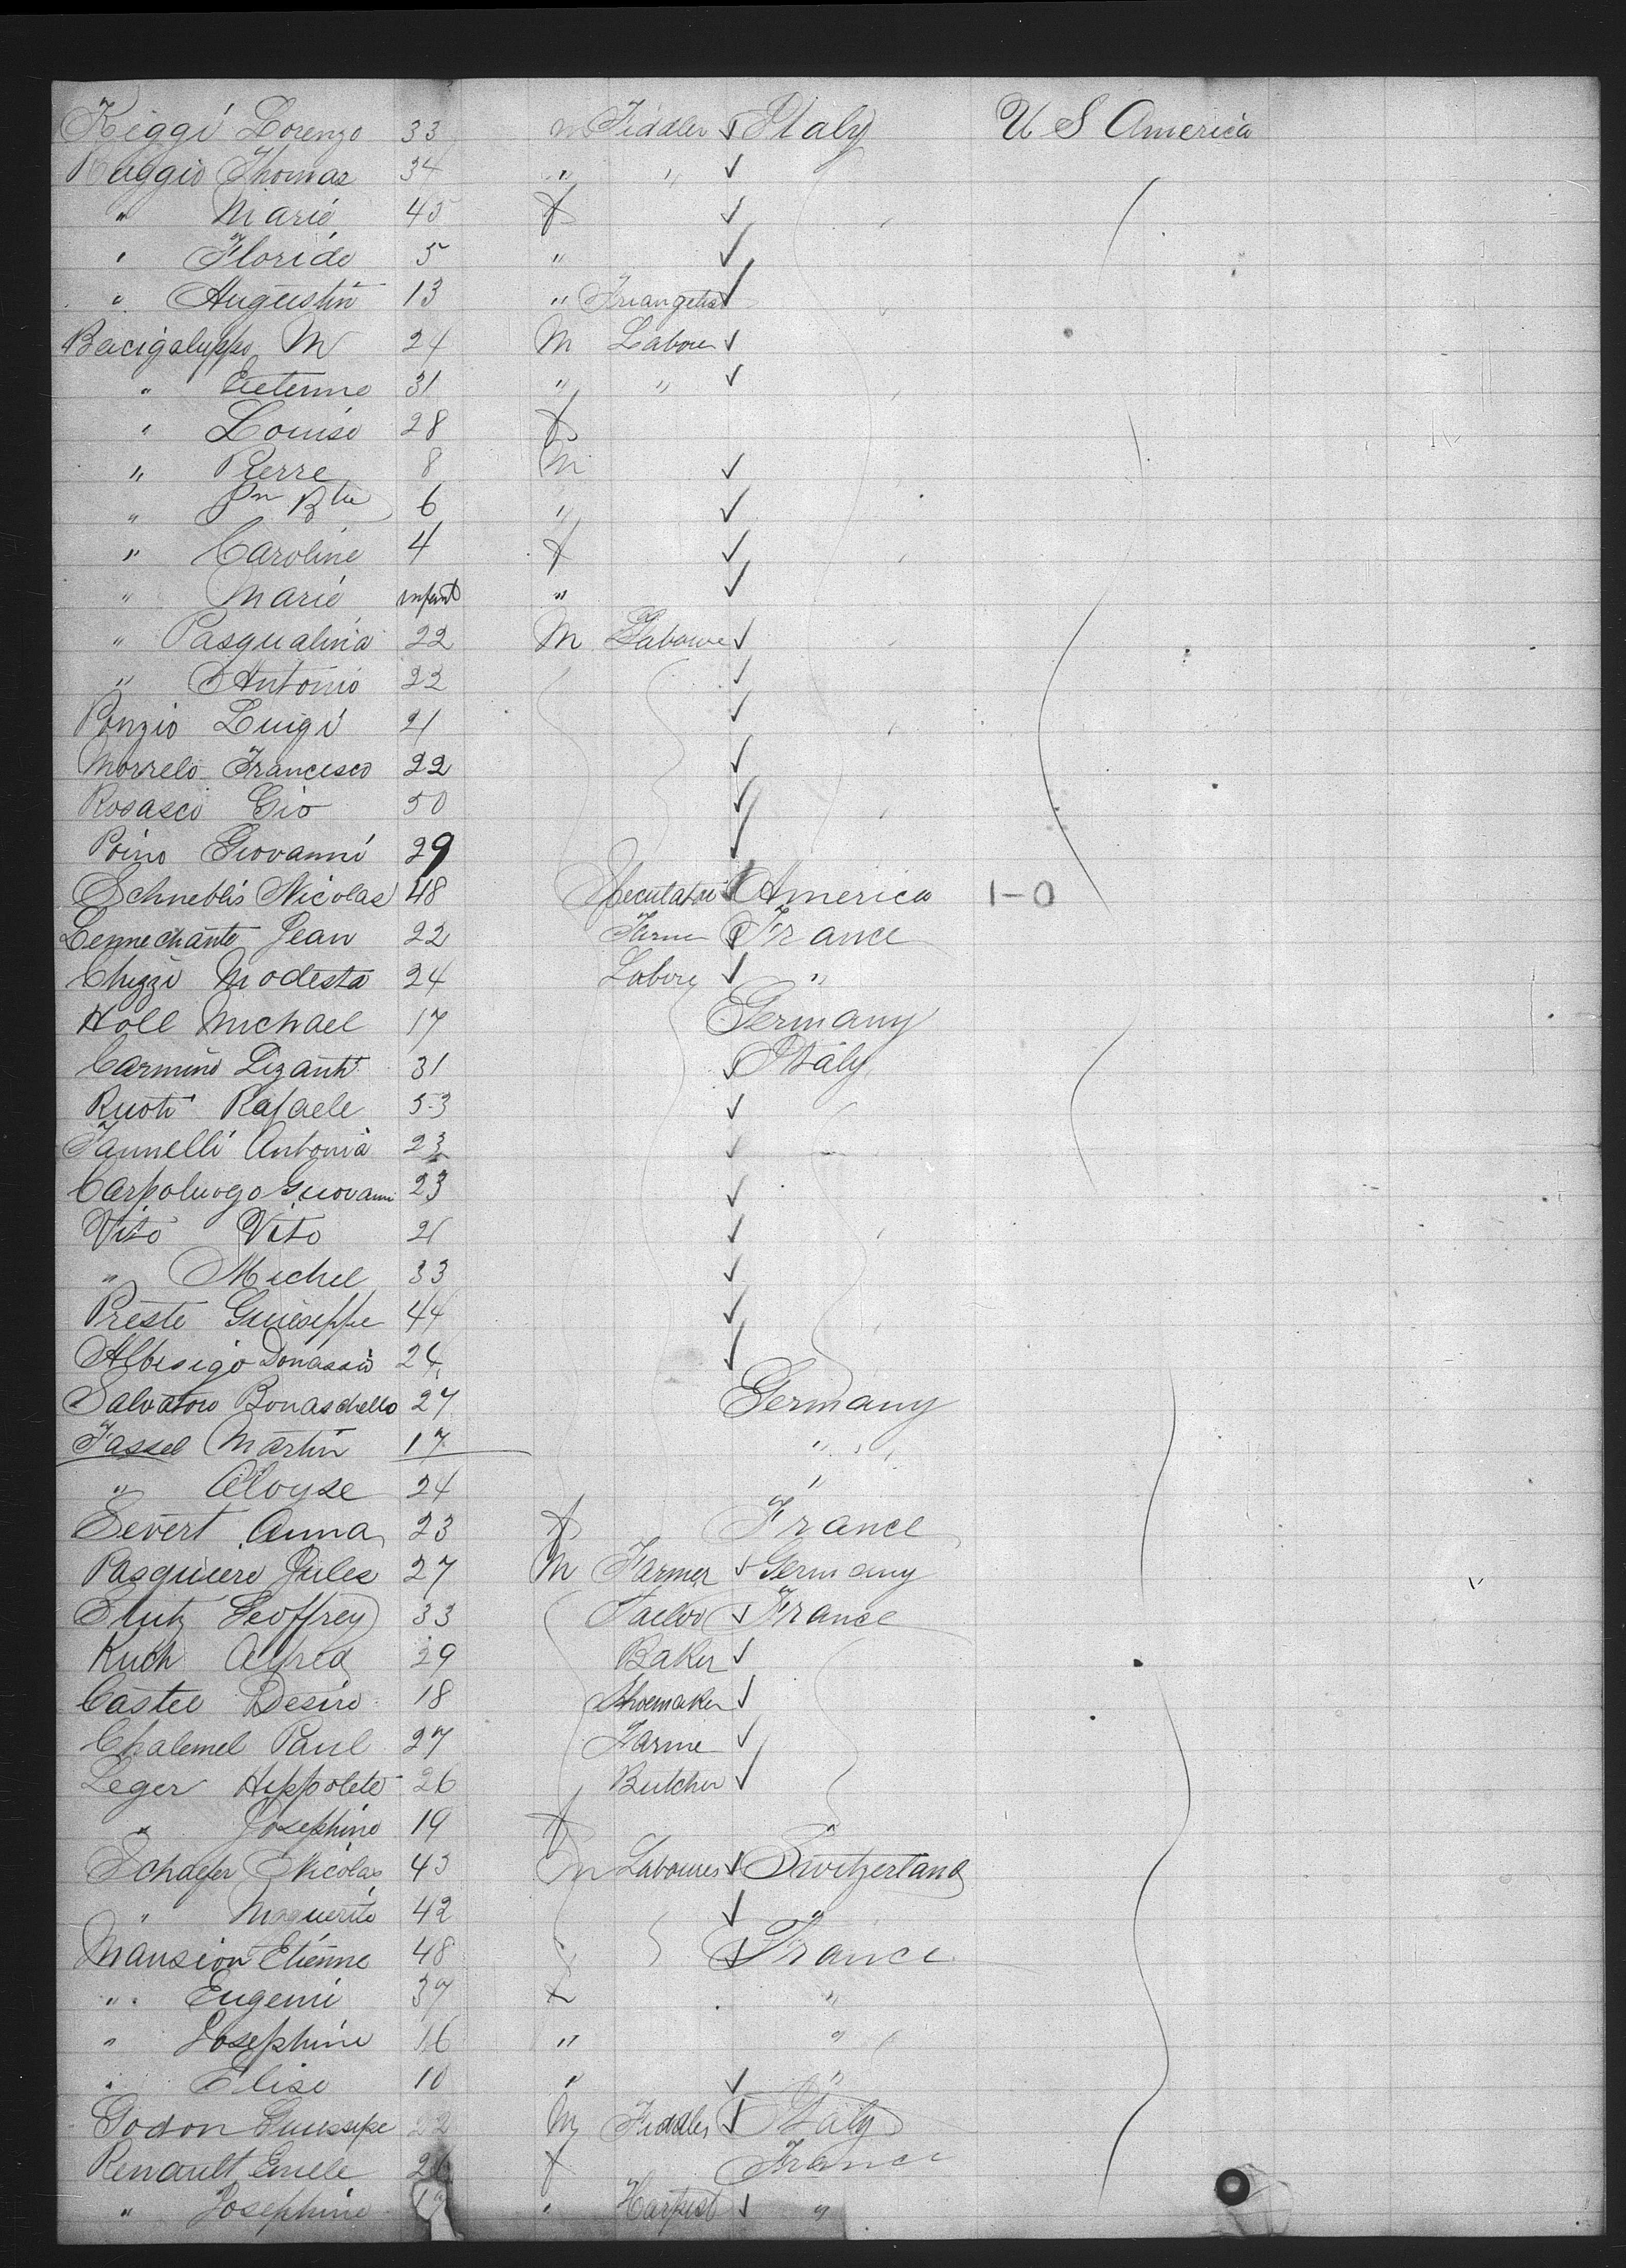 Riggi Lorenzo 33 m Fiddler ✓ Italy U S America
Raggio Thomas 34 " " ✓
" Marie 45 f ✓
" Floride 5 " ✓
" Augustin 13 " Triangelist ✓
Bacigaluppo M 24 M Labour ✓
" Etienne 31 " " ✓
" Louise 28 f
" Pierre 8 M ✓
" Jn Bte 6 " ✓
" Caroline 4 f ✓
" Marie infant " ✓
" Pasqualina 22 M Laboure ✓
" Antonio 22 ✓
Ponzio Luigi 21 ✓
Morrelo Francesco 22 ✓
Rosasco Gio 50 ✓
Poino Giovanni 29 ✓
Schneblis Nicolas 48 Speculator ✓ America 1-0
Lennechante Jean 22 Farme ✓ France
Chizzi Modesta 24 Labore ✓ "
Holl Michael 17 Germany
Carmino Lizanti 31 ✓ Italy
Ruoti Rafaele 53 ✓
Iannelli Antonia 23 ✓
Carpoluogo Giovanni 23 ✓
Vito Vito 21 ✓
" Michel 33 ✓
Preste Guiseppe 44 ✓
Albisigo Donassio 24 ✓
Salvatore Bonaschello 27 Germany
Fassel Martin 17 "
" Aloyse 24 "
Severt Anna 23 f France
Pasquiere Jules 27 M Farmer ✓ Germany
Stutz Geoffrey 33 Tailor ✓ France
Kuch Alfred 29 Baker ✓
Castel Desire 18 Shoemaker ✓
Chalemel Paul 27 Farme ✓
Leger Hippolete 26 Butcher ✓
" Josephine 19 f
Schafer Nicolas 43 m Laboures ✓ Switzerland
" Maguerite 42 ✓ "
Mansion Etienne 48 ✓ France
" Eugenie 37 f "
" Josephine 16 " "
" Elise 10 " ✓ "
Godon Guiseppe 22 M Fiddler ✓ Italy
Renault Emele 26 f France
" Josephine 19 " Harpist ✓ "